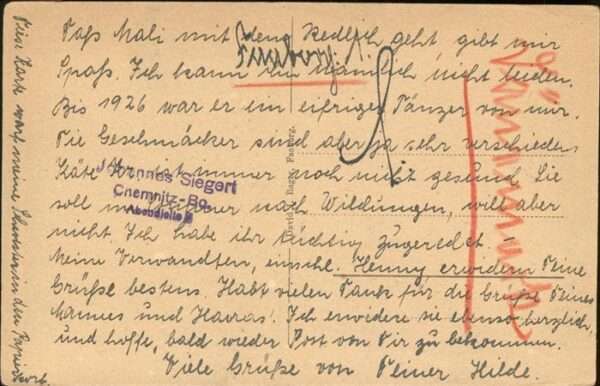 Daß Mali mit dem Redlich geht gibt mir
Spaß. Ich kann ihn nämlich nicht leiden.
Bis 1926 war er ein eifriger Tänzer von mir.
Die Geschmäcker sind aber ja sehr verschieden.
Käte ist immer noch nicht gesund. Sie
soll im nach Wildungen, will aber
nicht. Ich habe ihr tüchtig zugeredet –
Meine Verwandten, einschl. Henny erwidern Deine
Grüße bestens. Habt vielen Dank für die Grüße Deines
Mannes und Ich erwidere sie ebenso herzlich
und hoffe, bald wieder Post von Dir zu bekommen.
Viele Grüße von Deiner Hilde.
Diese Karte warf meine Schwester in den Papierkorb.
Johannes Siegert
Chemnitz-Bo.